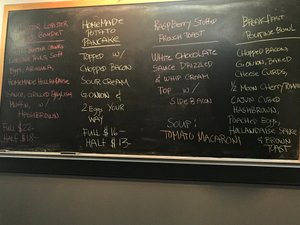 LOBSTER
HOMEMADE
POTATO
PANCAKE
TOPPED W/
CHOPPED BACON
SOUR CREAM
G. ONION &
2 EGGS YOUR
WAY
FULL $16-
HALF $13-
LOBSTER TAILS SOFT
HOMEMADE HOLLANDAISE
SAUCE, GRILLED ENGLISH
MUFFIN, W/
HASHBROWN
FULL $22-
HALF $18-
RASPBERRY STUFFED
FRENCH TOAST
WHITE CHOCOLATE
SAUCE DRIZZLED
& WHIP CREAM
TOP W/
SIDE BACON
SOUP:
TOMATO MACARONI
BREAKFAST
POUTINE BOWL
CHOPPED BACON
G. ONION, BAKED
CHEESE CURDS,
1/2 MOON CHERRY TOMATO
CAJUN CUBED
HASHBROWN,
POACHED EGGS,
HOLLANDAISE SAUCE
& BROWN
TOAST